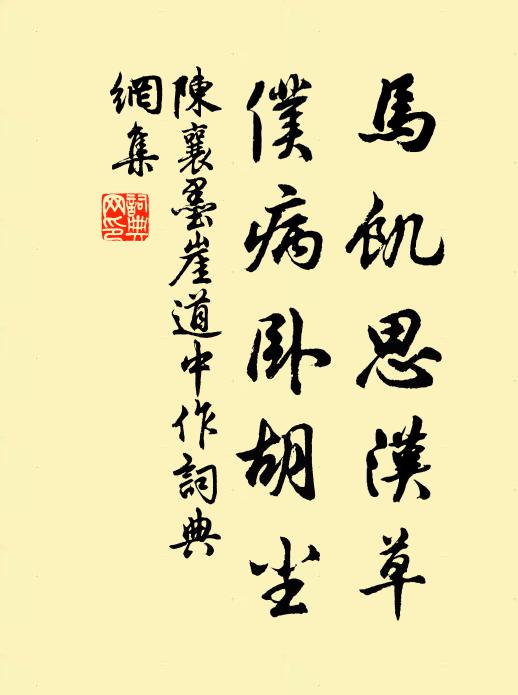 馬飢思漢草
僕病卧胡尘
陳襄黑崖道中作詞典
網集
詞典
网印